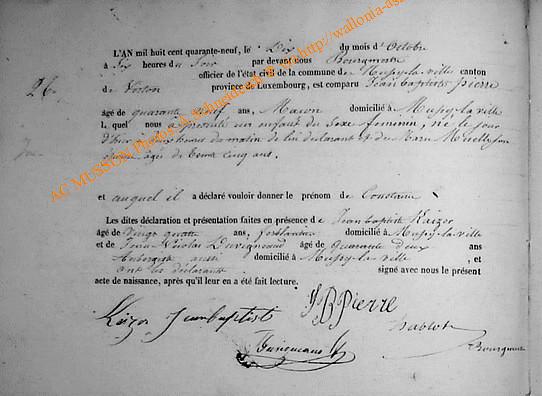 26.
L'AN mil huit cent quarante-neuf, le Dix du mois d'Octobre
à Six heures du Soir par devant nous Bourgmestre
officier de l'état civil de la commune de Mussy-la-ville canton
de Virton province de Luxembourg, est comparu Jean baptiste Pierre
âgé de quarante neuf ans, Macon domicilié à Mussy-la-ville
l quel nous a présenté un enfant du Sexe féminin, né le jour
d'hier heures du matin de lui déclarant et de son
épouse âgée de cinq ans.
et auquel il a déclaré vouloir donner le prénom de Constance
Les dites déclaration et présentation faites en présence de Jean baptiste Kaizer
âgé de vingt quatre ans, ferblantier domicilié à Mussy-la-ville
et de Jean Nicolas âgé de quarante deux ans
aussi domicilié à Mussy-la-ville, et
ont les déclarants signé avec nous le présent
acte de naissance, après qu'il leur en a été fait lecture.
JB Pierre
Kaizer Jean baptiste
AG MUSSON Photos A. Schneider http://wallonia-as